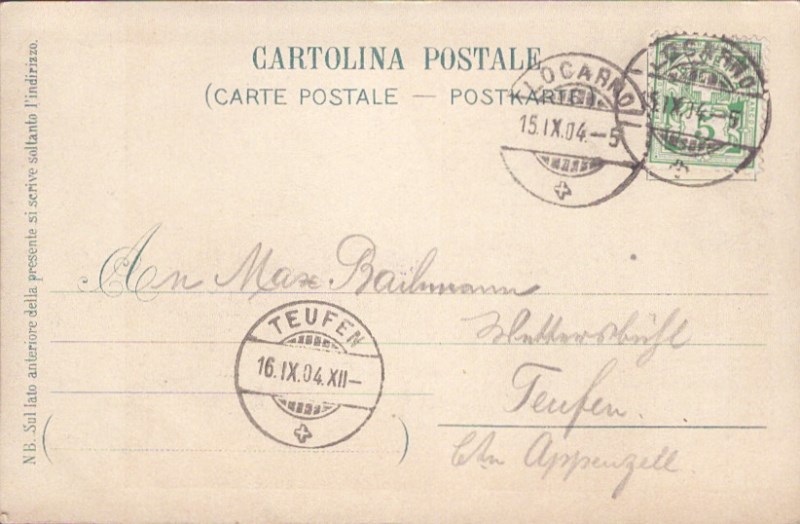 CARTOLINA POSTALE
(CARTE POSTALE — POSTKARTE)
LOCARNO
15.IX.04.–5
LOCARNO
15.IX.04.–5
5
An Max Bailmann
Wettersbühl
Teufen.
Ctn Appenzell.
TEUFEN
16.IX.04.XII–
NB. Sul lato anteriore della presente si scrive soltanto l'indirizzo.